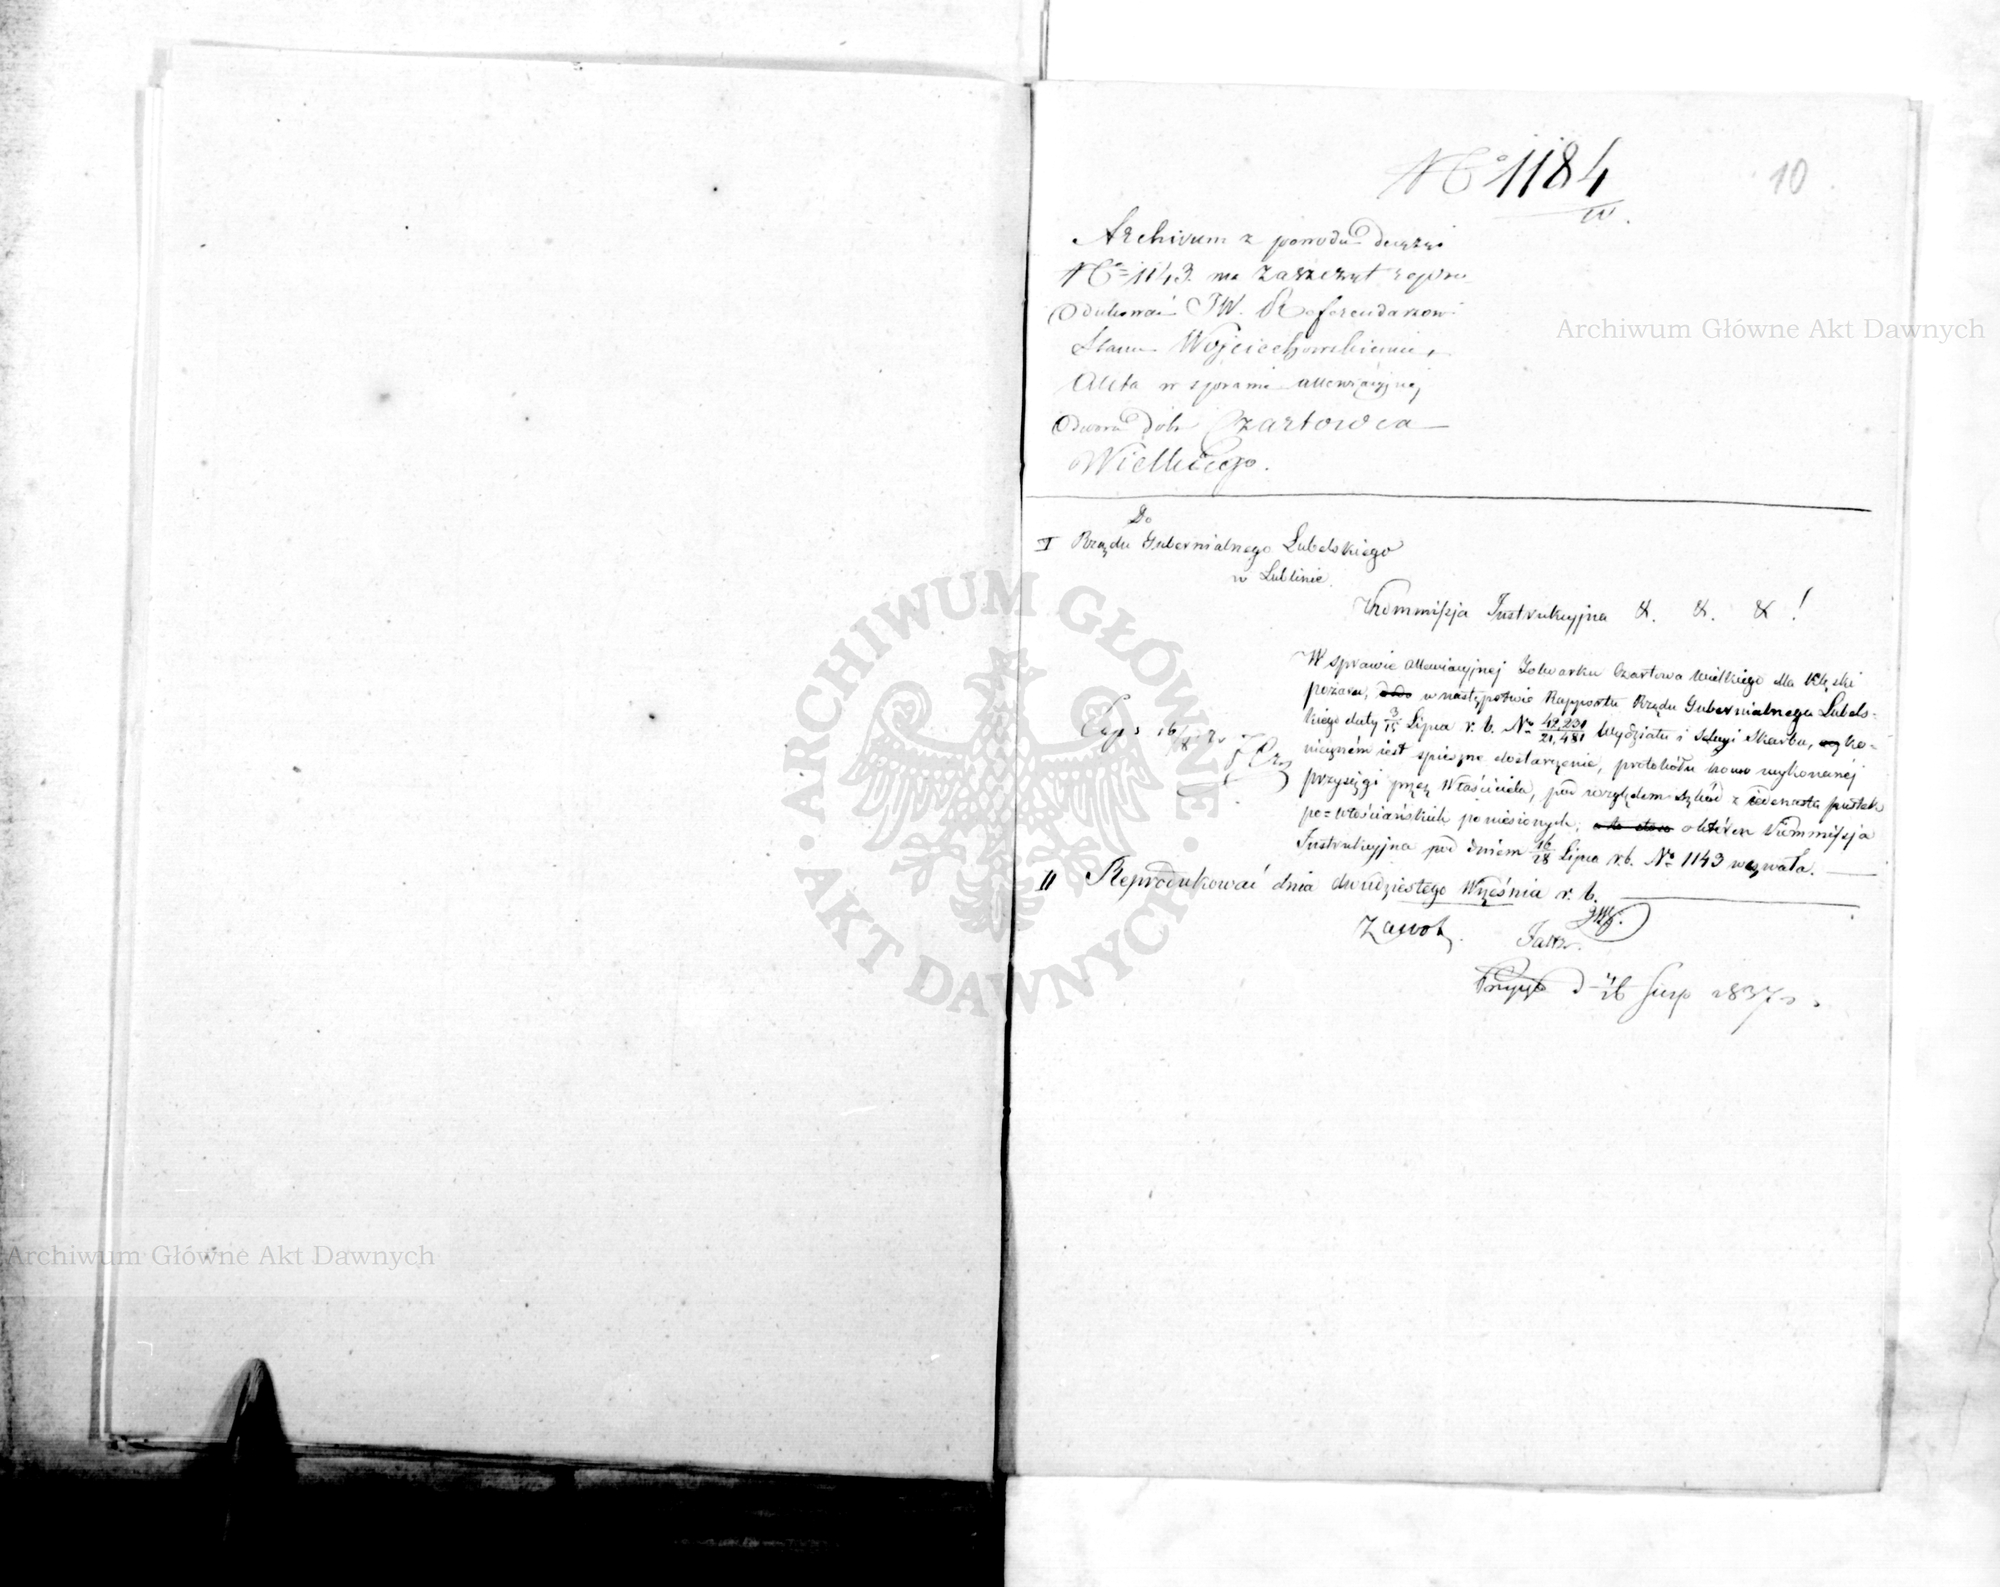 Nº 1184
10
Archivum z powodu decyzji
Nº 1143. ma zaszczyt repro
dukować JW. Referendarzowi
Stanu Wojciechowskiemu,
Akta w sprawie allewiacyjnej
dworu dóbr Czartowca
Wielkiego.
Do
I Rządu Gubernialnego Lubelskiego
w Lublinie.
Kommissja Instrukcyjna &. &. & !
W sprawie allewiacyjnej Folwarku Czartowca Wielkiego dla klęski
pożaru, w następstwie Rapportu Rządu Gubernialnego Lubels=
kiego daty 3/15 Lipca r. b. Nº 42,231/21,481 Wydziału i Skarbu, ko=
niecznem iest spieszne dostarczenie, protokółu wykonanéj
przysięgi przez Właściciela, pod względem szkód z iedenastu pustek
po=włościańskich poniesionych, o któren Kommissja
Instrukcyjna pod dniem 16/28 Lipca r.b. Nº 1143 wezwała.
II Reprodukować dnia dwudziestego Września r. b.
Exp. 16/8
Zawoł.
1837 r.
Archiwum Główne Akt Dawnych
Archiwum Główne Akt Dawnych
ARCHIWUM GŁÓWNE
AKT DAWNYCH